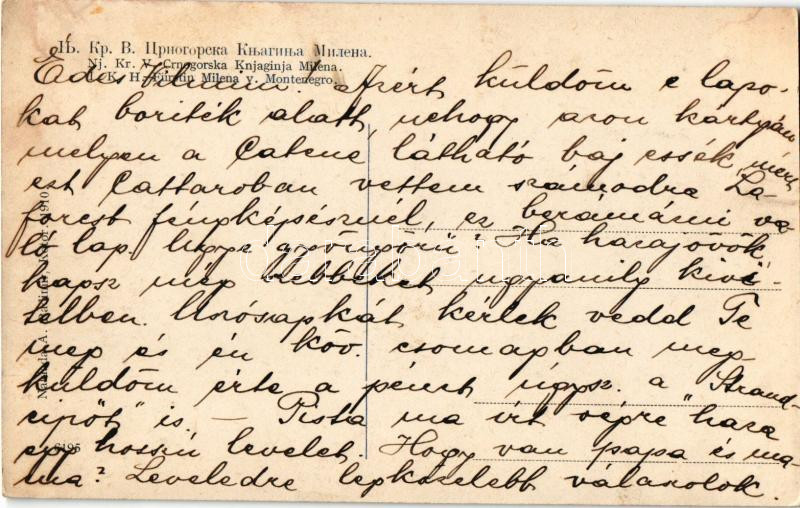 Њ. Кр. В. Црногорска Књагиња Милена.
Nj. Kr. V. Crnogorska Knjaginja Milena.
K. H. Fürstin Milena v. Montenegro.
Edes Vilmim! Azért küldöm e lapo-
kat boriték alatt, nehogy azon kártyán
melyen a Catene látható baj essék, mert
ezt Cattaroban vettem számodra La-
forest fényképésznél, ez berámázni va-
ló lap. Ugye gyönyörü? Ha hazajövök
kapsz még többeket ugyanily kivi-
telben. Uszósapkát kérlek vedd Te
meg és én köv. csomagban meg
küldöm érte a pénzt úgysz. a "Strand-
cipőt" is. — Pista ma irt végre haza
egy hosszú levelet. Hogy van papa és ma-
ma? Leveledre legközelebb válaszolok.
6195